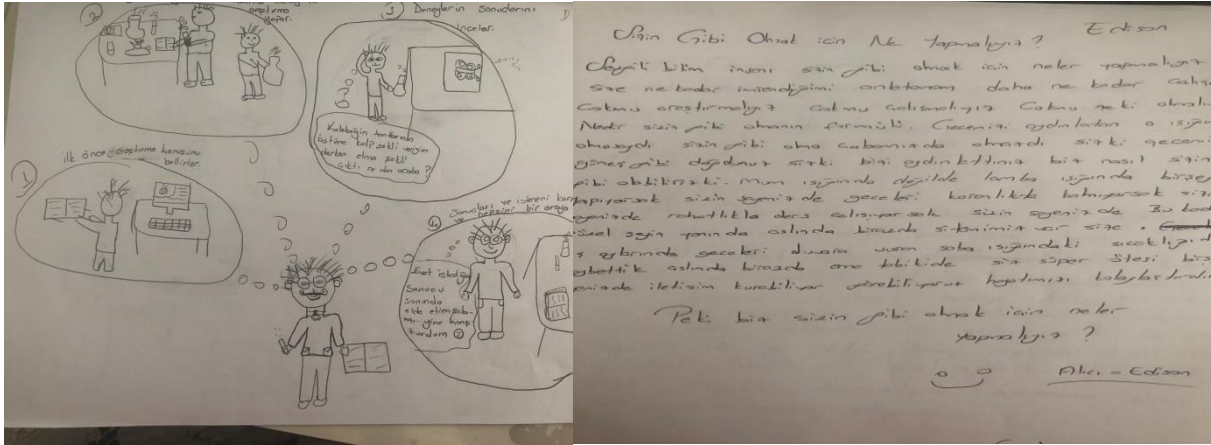 2
araştırma
yapar.
3 Deneylerin Sonuçlarını
inceler.
Kelebeğin kanatlarının
üstüne belli şekli verişin
derken elma şekli
çıktı neden acaba ?
1
ilk önce araştırma konusunu
belirler.
4 Sonuçları ve
ve hepsini bir araya
Evet işte
Sonucu
sonunda
elde ettim
yine
Edison
Sizin Gibi Olmak için Ne Yapmalıyız ?
Sevgili bilim insanı sizin gibi olmak için neler yapmalıyız
size ne kadar imrendiğimi anlatamam daha ne kadar
Çokmu araştırmalıyız çokmu çalışmalıyız çokmu zeki
Nedir sizin gibi olmanın formülü. Gecemizi aydınlatan o
olmasaydı sizin gibi olma çabamızda olmazdı sizki
güneş gibi doğdunuz sizki bizi aydınlattınız biz nasıl sizin
gibi olabilirizki. Mum ışığında değilde lamba ışığında
yapıyorsak sizin sayenizde geceleri karanlıkta
rahatlıkla ders çalışıyorsak sizin sayenizde Bu
şeyin yanında aslında birazda sitemimiz var size .
aylarında geceleri duvara vuran soba ışığındaki
kaybettik aslında birazda ama tabikide siz süper ötesi
iletişim kurabiliyor görebiliyoruz hayatımızı
Peki biz sizin gibi olmak için neler
yapmalıyız ?
Alıcı = Edison